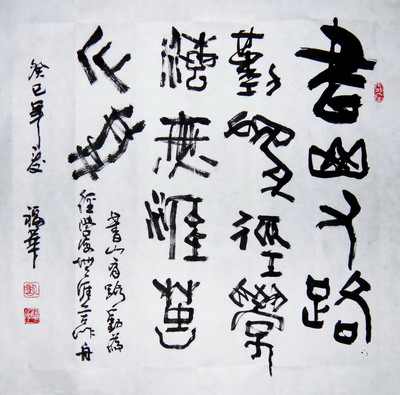 書山有路
勤為徑學
海無涯苦
作舟
書山有路勤為
徑學海無涯苦作舟
癸巳年夏 福華